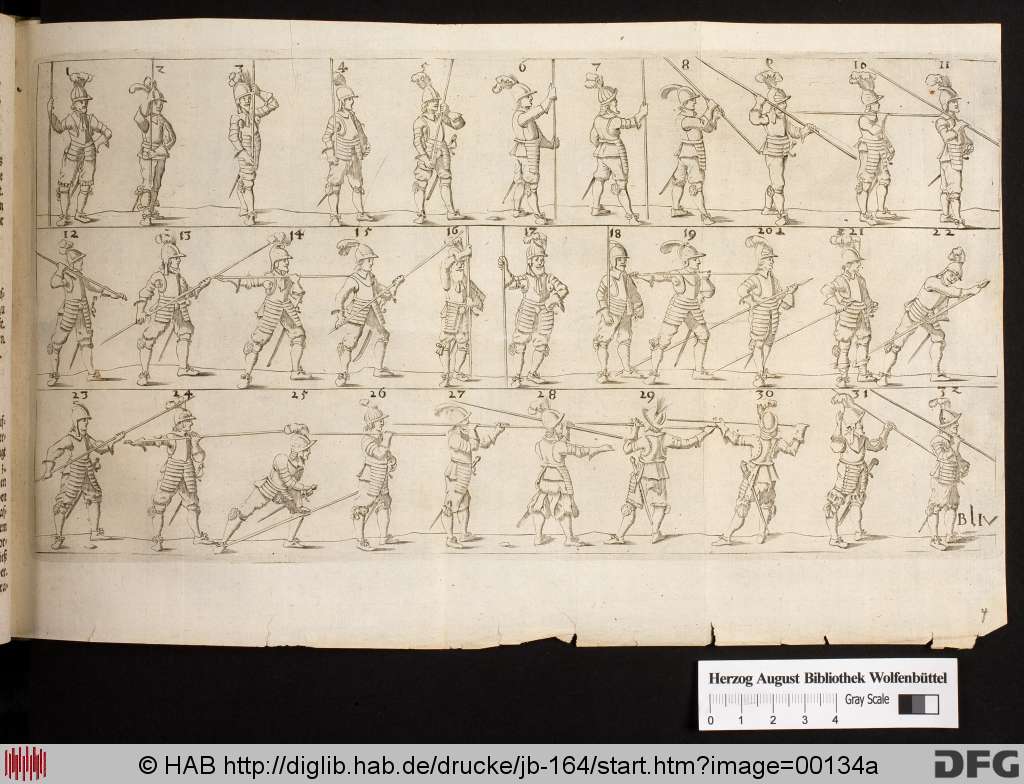 1 2 3 4 5 6 7 8 9 10 11
12 13 14 15 16 17 18 19 20 21 22
23 24 25 26 27 28 29 30 31 32
B IV
4
Herzog August Bibliothek Wolfenbüttel
Gray Scale
0 1 2 3 4
© HAB http://diglib.hab.de/drucke/jb-164/start.htm?image=00134a
DFG